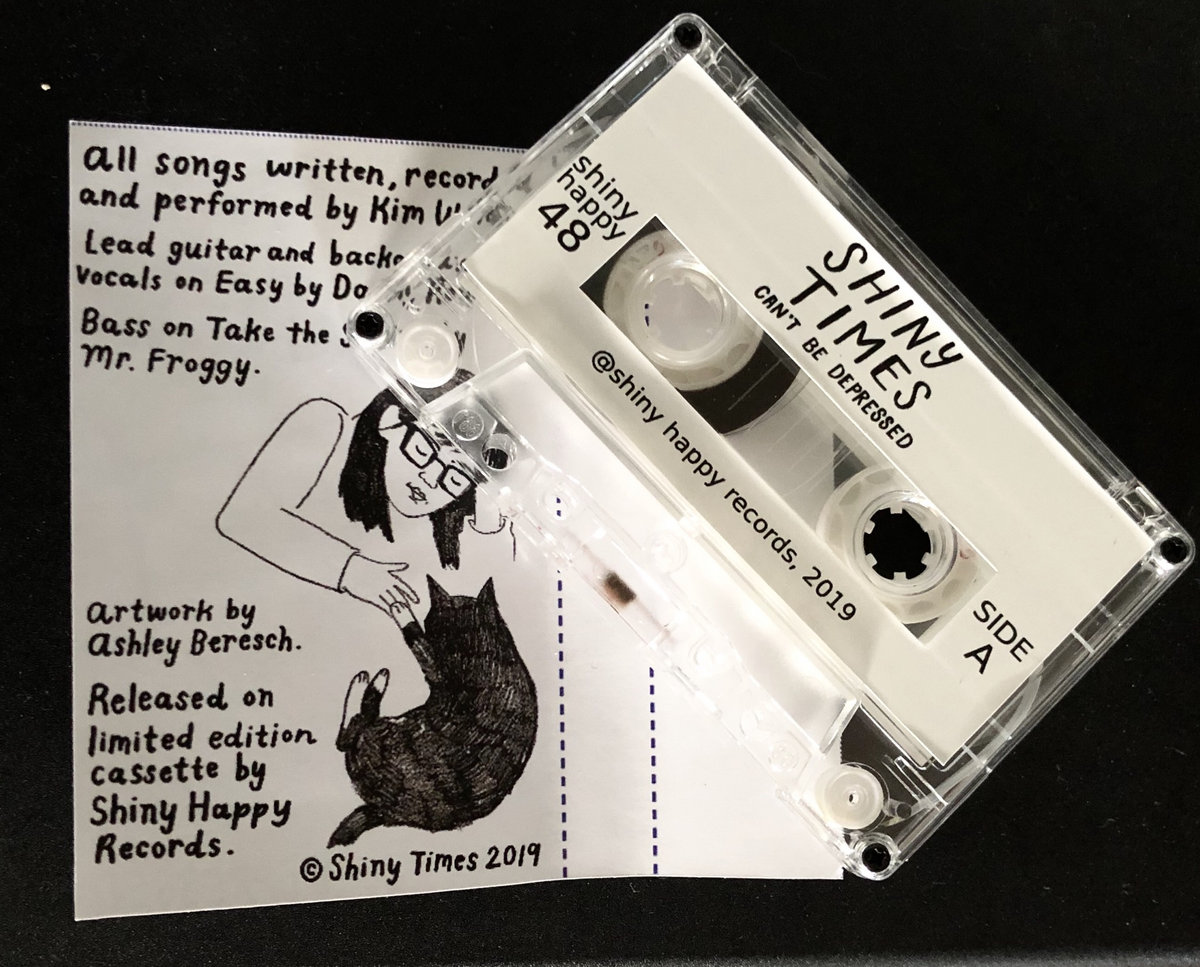 all songs written, record
and performed by Kim
Lead guitar and back
vocals on Easy by
Bass on Take the
Mr. Froggy.
artwork by
ashley Beresch.
Released on
limited edition
cassette by
Shiny Happy
Records.
© Shiny Times 2019
shiny
happy
48
SHINY
TIMES
CAN'T BE DEPRESSED
@shiny happy records, 2019
SIDE
A